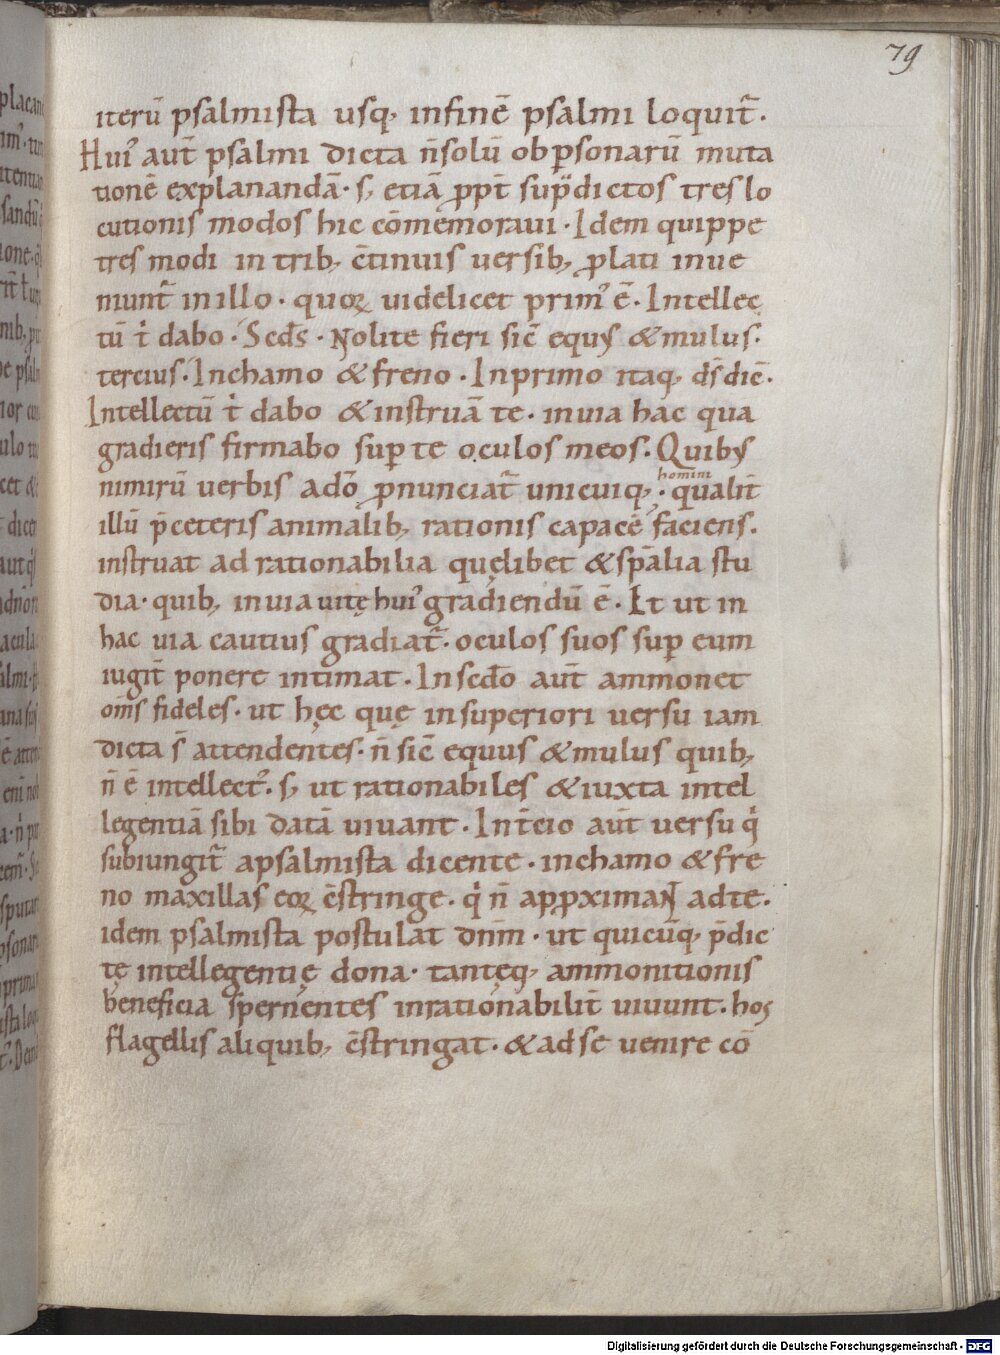 79
iterū psalmista usq; infinē psalmi loquit᷑.
Hui᷒ aut̄ psalmi dicta n̄solū obp̲sonarū muta
tionē explanandā· s; etiā ꝓpt̄ sup̲dictos tres lo
cutionis modos hic cōmemoraui· Idem quippe
tres modi in trib; c̄tinuis uersib; ꝓlati inue
niunt᷑ in illo· quoꝝ uidelicet prim᷒ ē· Intellec
tū t̄ dabo· Scds̄· Nolite fieri sic̄ equꝰ &mulus·
tercius· Inchamo &freno· Inprimo itaq; ds̄ dic̄·
Intellectū t̄ dabo &instruā te· inuia hac qua
gradieris firmabo sup̲ te oculos meos· Quibꝰ
homini
nimirū uerbis adō ꝓnunciat᷑ unicuiq;· qualit̄
illū p̄ceteris animalib; rationis capacē faciens·
instruat ad rationabilia quęlibet &sp̄alia stu
dia· quib; inuia uitę hui᷒ gradiendū ē· Et ut in
hac uia cautius gradiat᷑· oculos suos sup̲ eum
iugit̄ ponere intimat· Inscdo aut̄ ammonet
om̄s fideles· ut hęc quę insuperiori uersu iam
dicta s̄ attendentes· n̄ sic̄ equus &mulus quib;
n̄ ē intellect᷒· s; ut rationabiles &iuxta intel
legentiā sibi datā uiuant· Int̄cio aut̄ uersu q̇
subiungit᷑ apsalmista dicente· inchamo &fre
no maxillas eoꝝ c̄stringe· q̇ n̄ apꝓximant adte·
idem psalmista postulat dnm̄· ut quicūq; p̄dic
tę intellegentię dona· tantęq; ammonitionis
beneficia spernentes inrationabilit̄ uiuunt· hos
flagellis aliquib; c̄stringat· &adse uenire cō
Digitalisierung gefördert durch die Deutsche Forschungsgemeinschaft - DFG